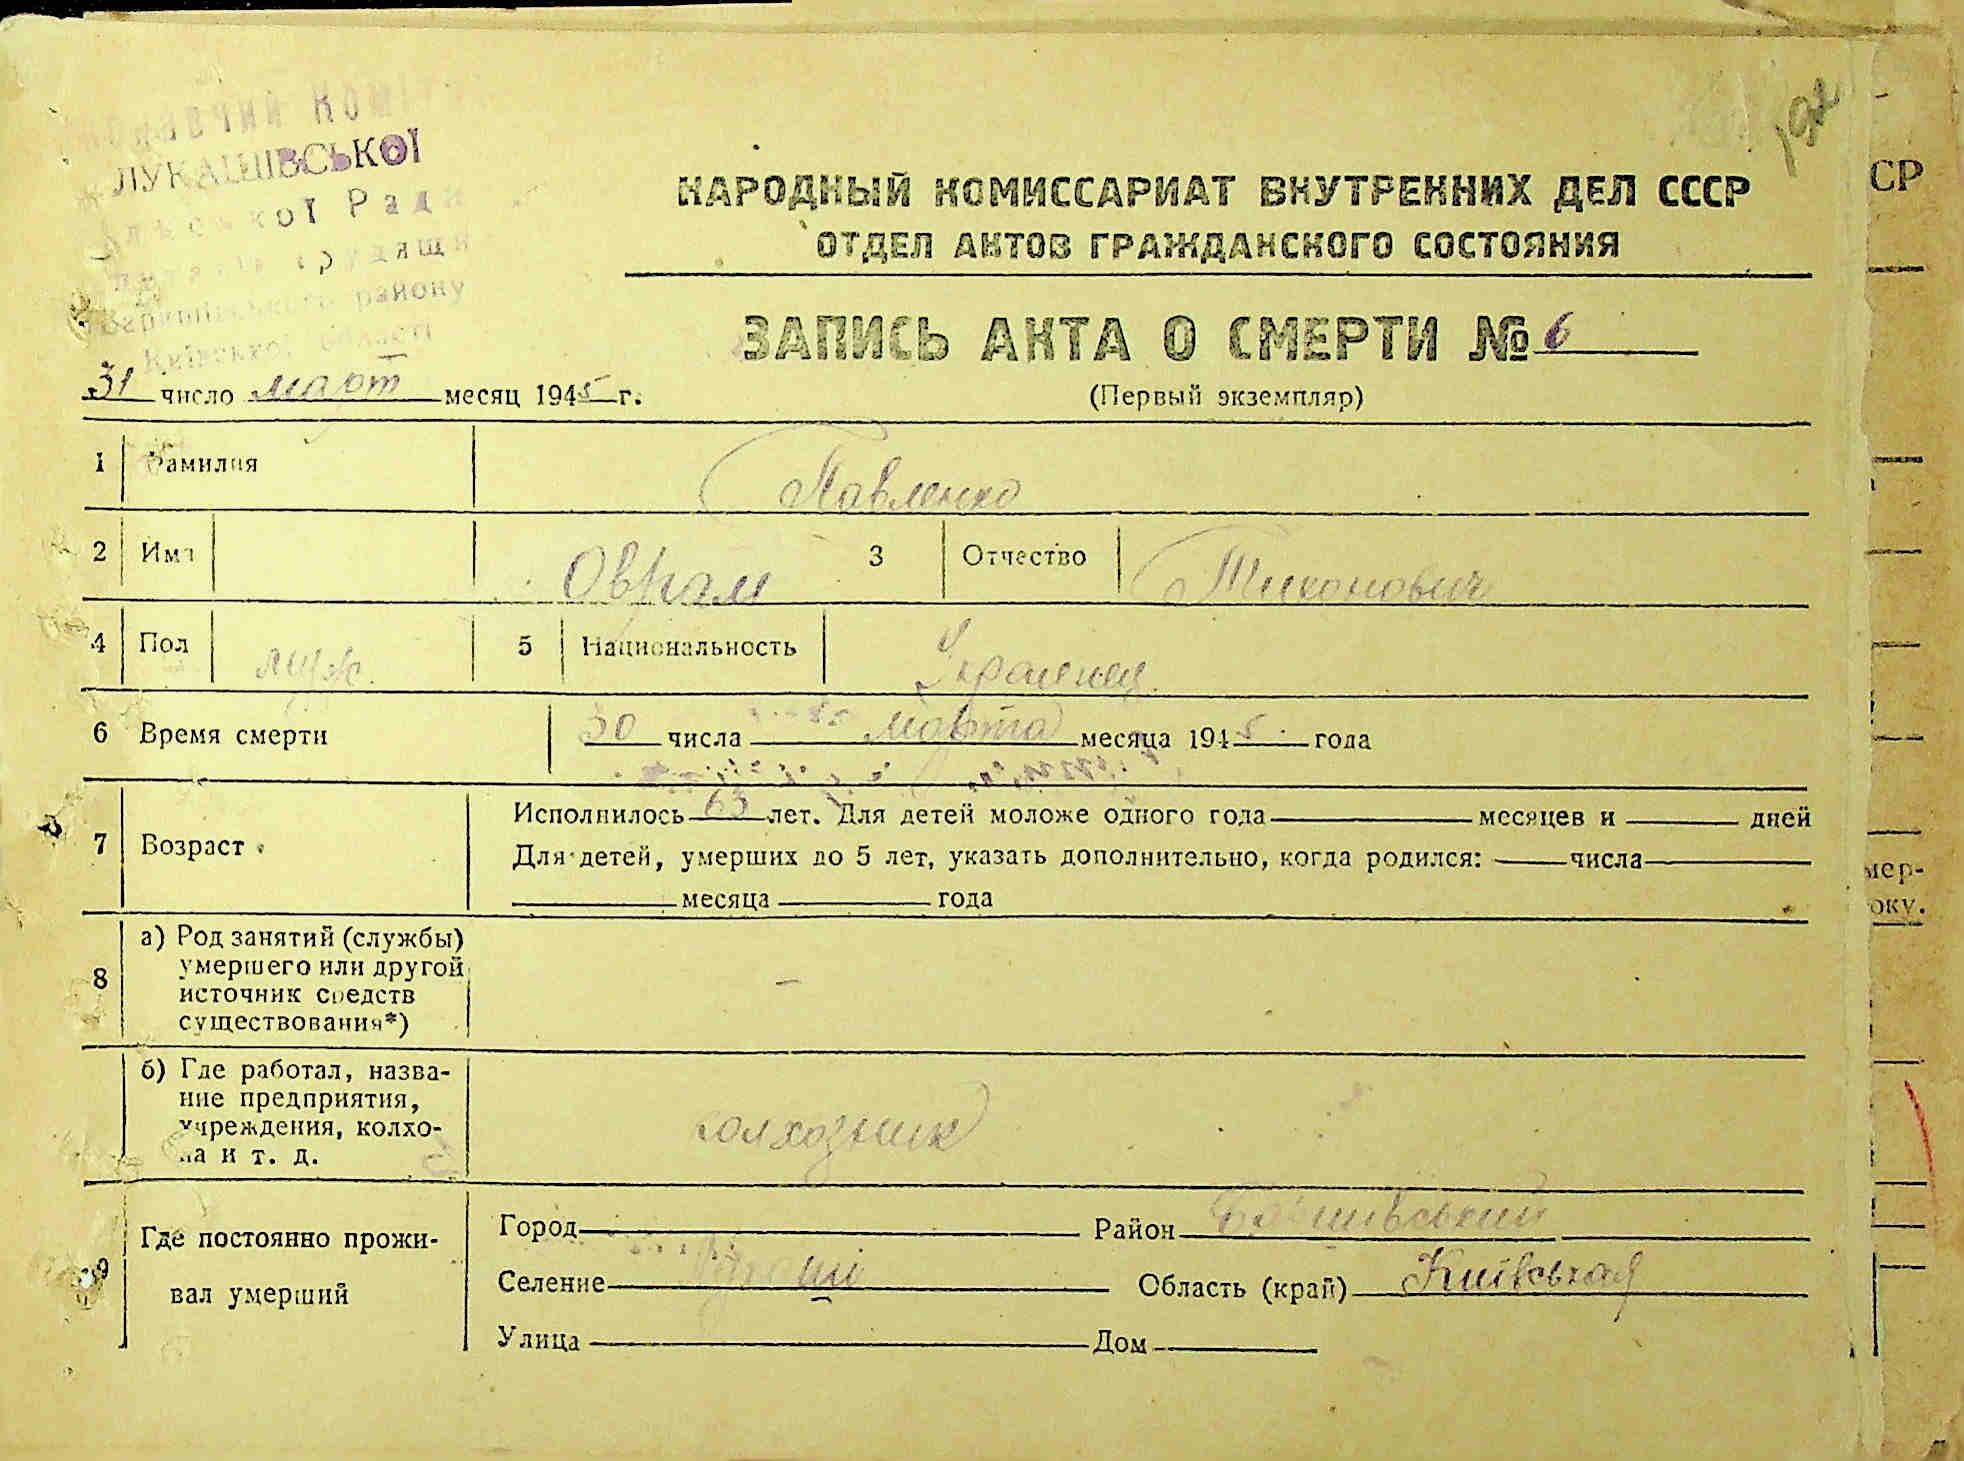 ЛУКАШІВСЬКОЇ
Ради
району
області
192
СР
НАРОДНЫЙ КОМИССАРИАТ ВНУТРЕННИХ ДЕЛ СССР
ОТДЕЛ АКТОВ ГРАЖДАНСКОГО СОСТОЯНИЯ
ЗАПИСЬ АКТА О СМЕРТИ № 6
(Первый экземпляр)
31 число март месяц 1945 г.
1 Фамилия Павленко
2 Имя Оврам 3 Отчество Тихонович
4 Пол муж. 5 Национальность Украинец
6 Время смерти 30 числа марта месяца 1945 года
7 Возраст
Исполнилось 63 лет. Для детей моложе одного года месяцев и дней
Для детей, умерших до 5 лет, указать дополнительно, когда родился: числа
месяца года
мер-
оку.
8 а) Род занятий (службы)
умершего или другой
источник средств
существования*)
–
б) Где работал, назва-
ние предприятия,
учреждения, колхо-
за и т. д.
колхозник
9 Где постоянно прожи-
вал умерший
Город Район
Селение Область (край) Київськая
Улица Дом